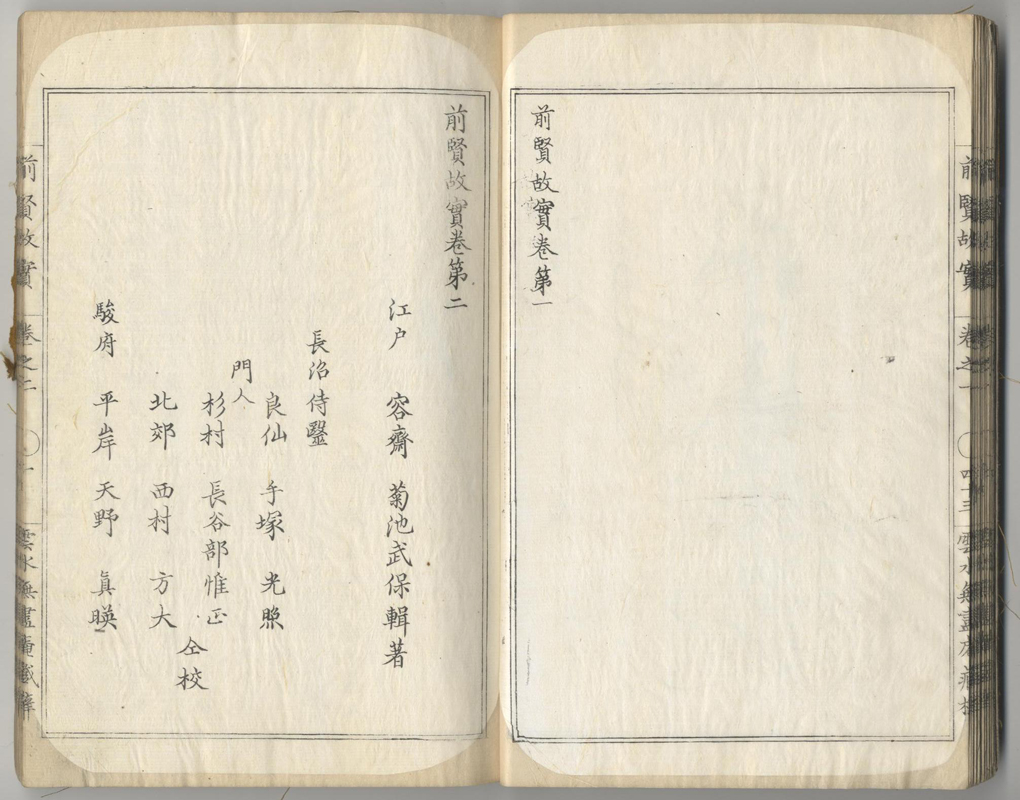 前賢故實卷之一 四十三 雲水無盡庵藏梓
前賢故實卷第一
前賢故實卷第二
江戸 容齋 菊池武保輯著
長沼侍毉
門人
良仙 手塚 光照
杉村 長谷部惟正
仝校
北郊 西村 方大
駿府 平岸 天野 眞暎
前賢故實 卷之二 一 雲水無盡庵藏梓